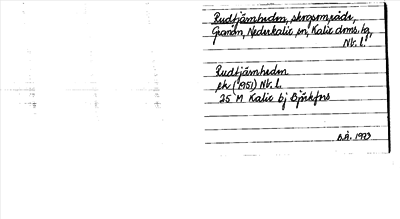 Rudtjärnheden, skogsområde,
Granån, Nederkalix sn, Kalix dms. tg,
Nb. l.
Rudtjärnheden
ek (1951) Nb. L.
25 M Kalix bj
B.Å. 1973